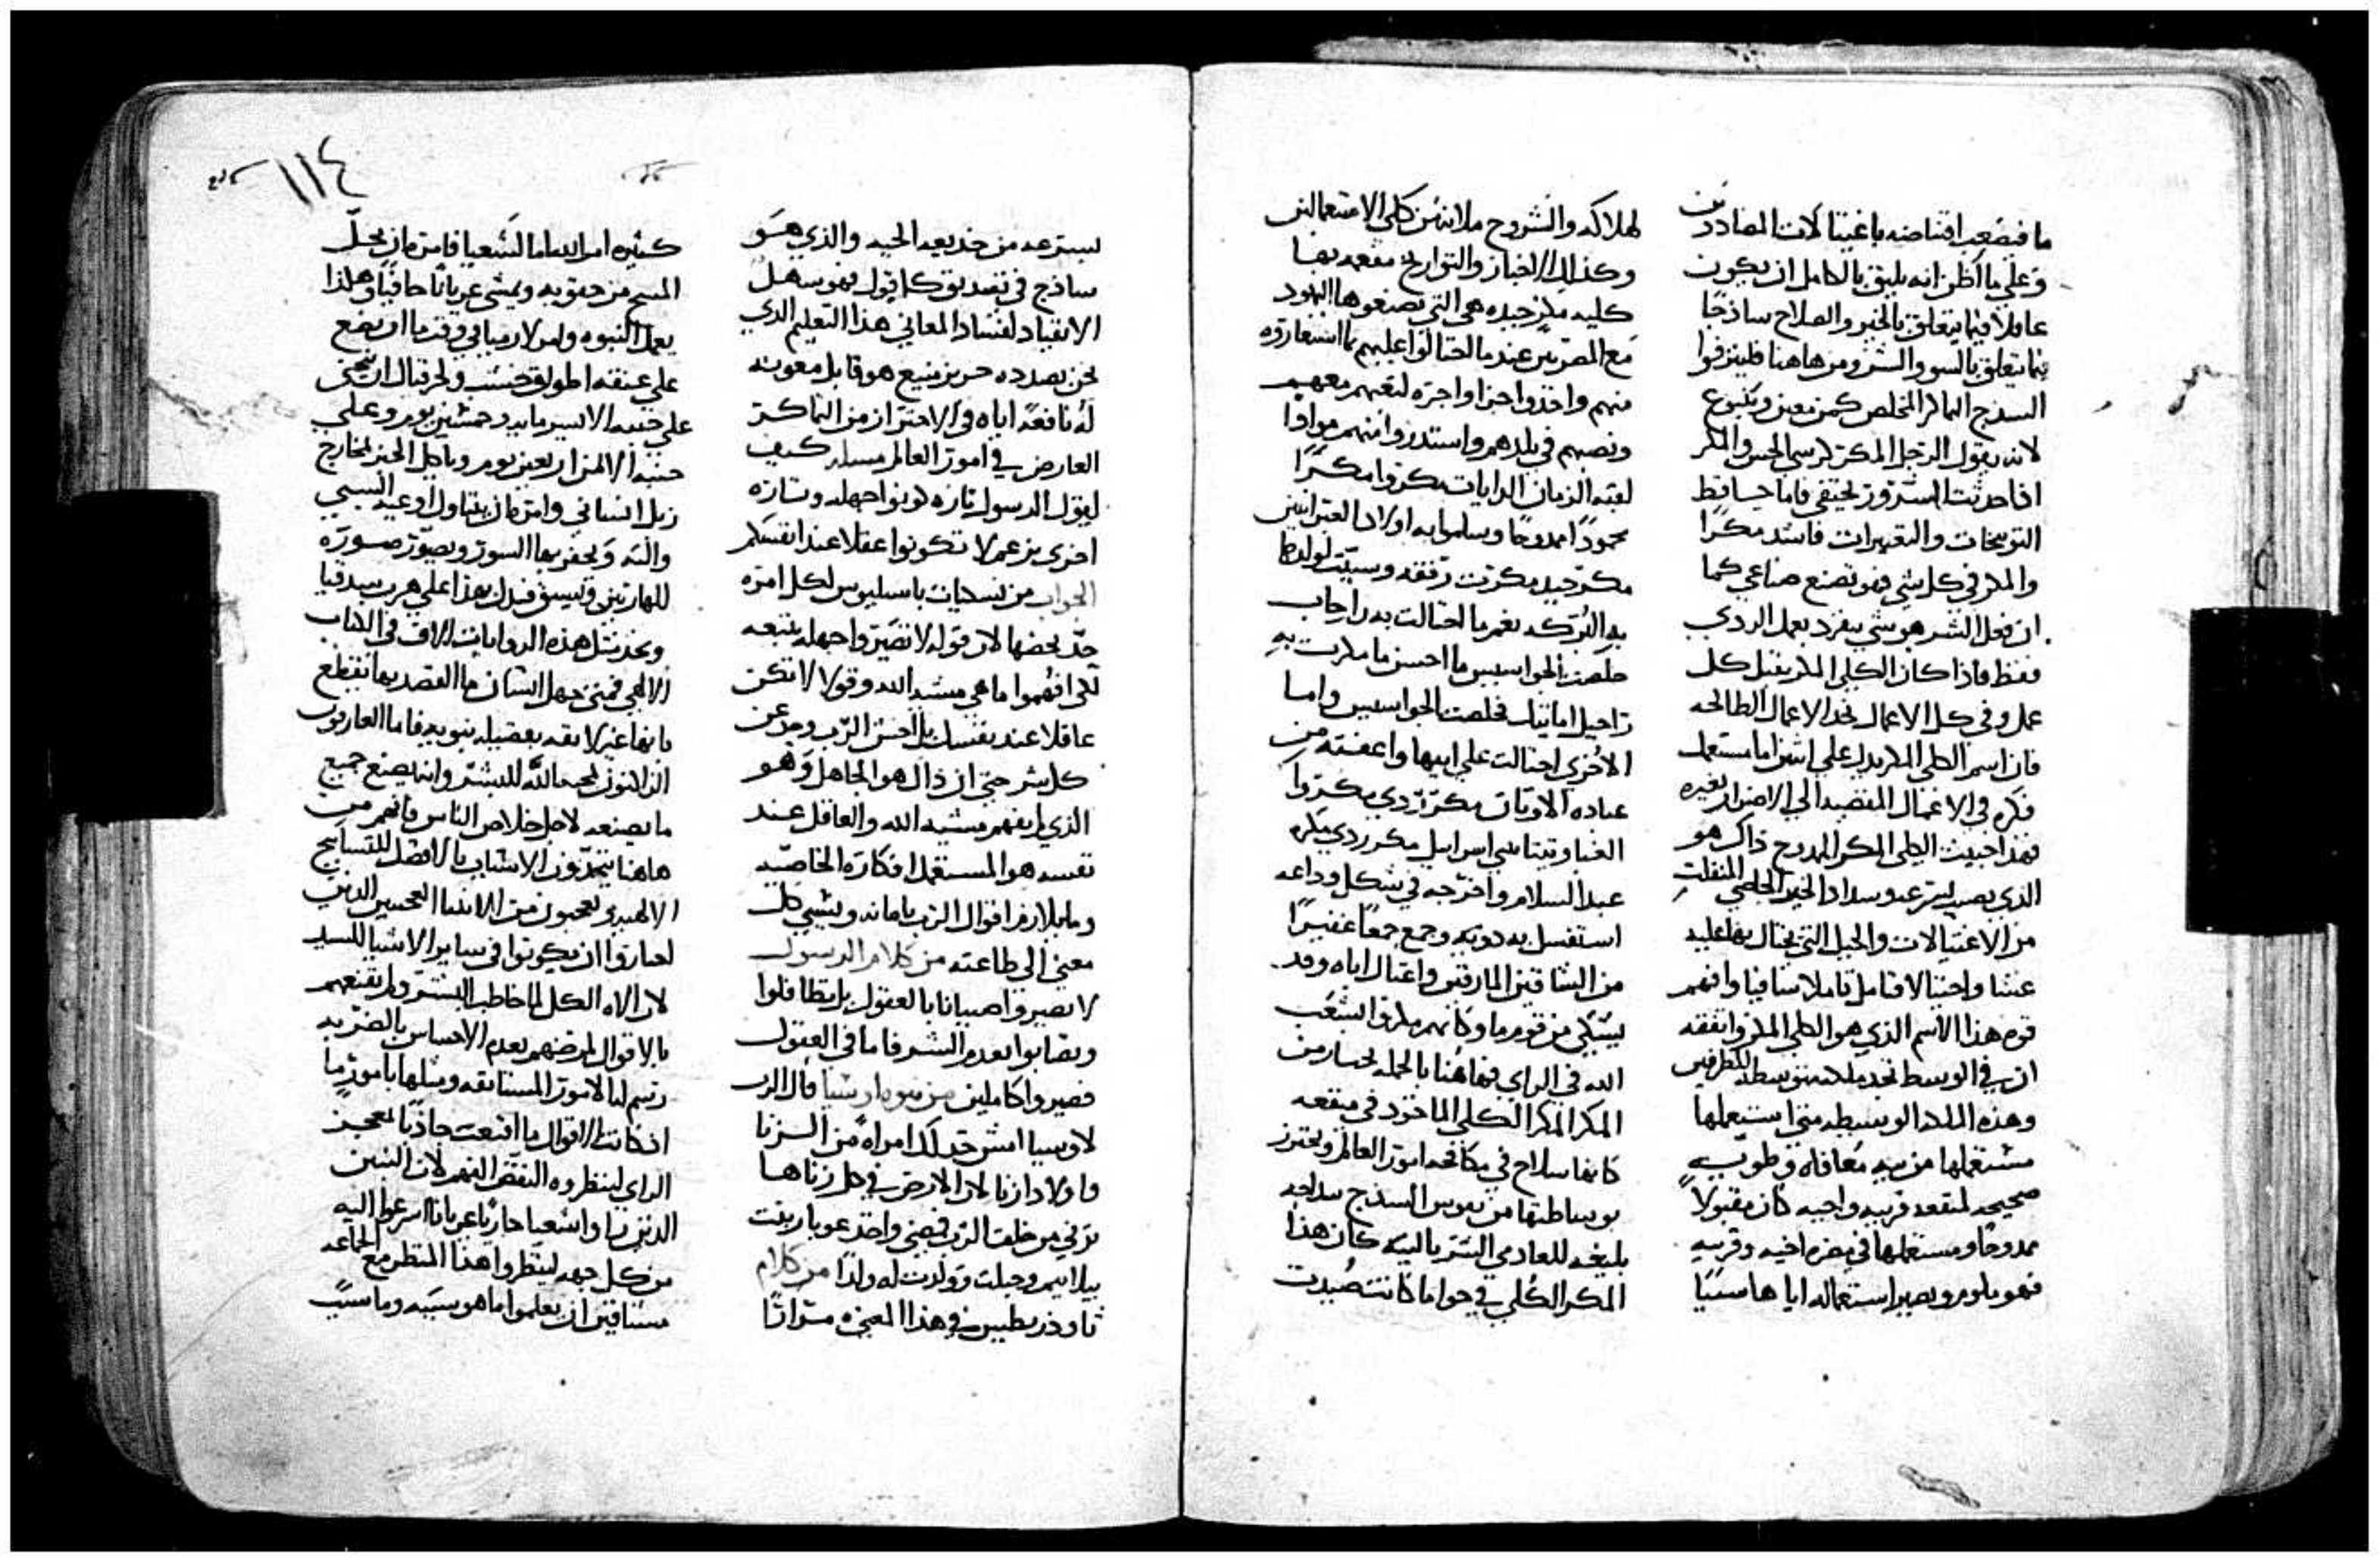 ما فيصعب اقتناصه باغتيالات المضاددين
وعلي ما اظن انه يليق بالكامل ان يكون
عاقلا فيما يتعلق بالخير والصلاح ساذجا
بما يتعلق بالسو والشر ومن هاهنا فليعرفوا
السذج الماكر المخلص كمن معين وينبوع
لانه يقول الرجل المكر كرسي الحس والمكر
اذا حدثت الشرور تختفي فاما حسا قط
التوبيخات والتعييرات فاشد مكرا
والمكر في كل شي فهو تصنع صناعي كما
ان فعل الشر هو شي ينفرد بعمل الردي
فقط فاذا كان الكلي المكر يقبل كل
عمل وفي كل الاعمال نجد الاعمال الطالحه
فان اسم الكلي المكر يدل علي اثنين اما مستعمل
فكره في الاعمال المفضيه الي الاضرار بغيره
فهذا خبيث الكلي المكر الممدوح ذاك هو
الذي يصير بسرعه وسداد الخير الخاصي المنفلت
من الاغتيالات والحيل التي يحتال بها عليه
غشا واحتيالا فتامل تاملا شافيا وافهم
قوه هذا الاسم الذي هو الكلي المكر واتفقه
ان في الوسط نجد ملكه متوسطه للطرفين
وهذه الملكه الوسيطه متي استعملها
مستعملها من نيه معافاه وطويه
صحيحه لمنفعه قريبه واجبه كان مقبولا
ممدوحا ومستعملها في مضره اخيه وقريبه
فهو ملوم ويصير استعماله اياها مسببا
لهلاكه والشروح ملانه من كلي الاستعمالين
وكذلك الاخبار والتواريخ مفعمه بها
كليه مكر جيده هي التي تصنعوها اليهود
مع المصريين عندما احتالوا عليهم بما استعاروه
منهم واخذوا اجرا واجرة لتعبهم معهم
ونصبهم في بلدهم واستدروا منهم مواد
لقبه الزمان الدايات مكروا مكرا
محمودا ممدوحا وسلموا به اولاد العبرانيين
مكر جيد مكرت رفقه وسببت لولدها
به البركه نعم ما احتالت به راحاب
خلصت الجواسيس ما احسن ما مكرت به
راحيل اما تيك فخلصت الجواسيس واما
الاخري احتالت علي ابيها واعفته من
عباده الاوثان مكر ردي مكروا
عبد السلام واخرجه في شكل وداعه
استغسل به دونه وجمع جمعا غفيرا
من الشاقين المارقين واغتال اباه وقد
يشتكي من قوم ما وكانهم مكروا الشعب
الله في الراي فها هنا بالجمله نختار من
المكر المكر الكلي الماخوذ في منفعه
كانها سلاح في مكافحه امور العالم ونحترز
بوساطتها من نفوس السذج سداجه
بليغه للعادمي الشر بالنيه كان هذا
المكر الكلي في حوا ما كانت صيدت
بسرعه من خديعه الحيه والذي هو
ساذج في تصديق كل قول فهو سهل
الانقياد لفساد المعاني هذا التعليم الذي
نحن بصدده حريز منيع هو قابل معونه
له نافعه اياه في الاحتراز من الماكر
العارض في امور العالم مساله كيف
يقول الرسول تاره كونوا جهله وتاره
اخري يزعم لا تكونوا عقلا عند انفسكم
الجواب من نسكيات باسيليوس لكل امره
حد يخصها لان قوله لا تصيروا جهله يتبعه
لكن افهموا ما هي مشيه الله وقول لا تكن
عاقلا عند نفسك بل اخش الرب وحد عن
كل شر حتي ان ذاك هو الجاهل وهو
الذي لم يفهم مشيه الله والعاقل عند
نفسه هو المستعمل افكاره الخاصيه
وما يلازم اقوال الرب بامانه ويسبي كل
معني الي طاعته من كلام الرسول
لا تصيروا صبيانا بالعقول بل تطافلوا
وتصابوا بعدم الشر فاما في العقول
فصيروا كاملين من نبوه ارشيا قال الرب
لاوسيا امش خذ لك امراه من الزنا
واولاد ازنا لان الارض في كل زناها
تزني من خلف الرب فمضي واخذ عوبا بنت
بيلاييم وحبلت وولدت له ولدا من كلام
ثاودريطس في هذا المعني مرارا
كثيره امر الله اما الشعيا فامره ان يحل
المسح من حقويه ويمشي عريانا حافيا وهكذا
يعمل النبوه وامر لارميا في وقت ما ان يضع
علي عنقه اطواق خشب ولحزقيال ان يتكي
علي جنبه الايسر مايه وخمسين يوم وعلي
جنبه الايمن اربعين يوم وياكل الخبز بخارج
زبل انساني وامره ان يتناول اوعيه السبي
والته ويحفر بها السور ويصور صوره
للهاربين ويسبق فيدل بهذا علي هرب سدقيا
ونجد مثل هذه الروايات الاف في الكتاب
الالهي فمتي جهل انسان ما القصد بها تقطع
بانها غير لايقه بفضيله نبويه فاما العارفون
الزاكنون بمحبه الله للبشر وانه يصنع جميع
ما يصنعه لاجل خلاص الناس فانهم من
هاهنا يتخذون الاسباب بالافضل للتسابيح
الالهيه ويعجبون من الانبيا العجيبين الذين
اختاروا ان يكونوا في ساير الاشيا للسيد
لان الاه الكل لما خاطب البشر ولم يقنعهم
بالاقوال لمرضهم بعدم الاحساس بالضربه
رسم لنا الامور المستانفه ومثلها بامور ما
اذ كانت الاقوال ما اقنعت جاذبا بمعجز
الراي لينظروه النقص الفهم لان البنين
الذين راوا اشعيا حازيا عريانا اسرعوا اليه
من كل جهه لينظروا هذا المنظر مع الجماعه
مشتاقين ان يعلموا ما هو سببه وما سبب
١١٤